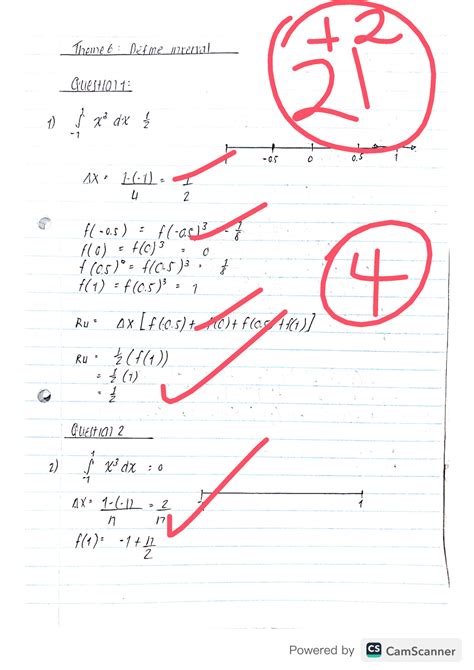 +2
21
Theme 6: Define interval
Question 1:
1) ∫ 1 -1 x³ dx 1/2
-0.5 0 0.5 1
Δx = 1-(-1)/4 = 1/2
f(-0.5) = f(-0.5)³ - 1/8
f(0) = f(0)³ = 0
f(0.5) = f(0.5)³ = 1/8
f(1) = f(0.5)³ = 1
4
R4 = Δx [f(-0.5) + f(0) + f(0.5) + f(1)]
R4 = 1/2 (f(1))
= 1/2 (1)
= 1/2
Question 2
2) ∫ 1 -1 x³ dx = 0
Δx = 1-(-1)/n = 2/n
1
f(1) =
Powered by CS CamScanner